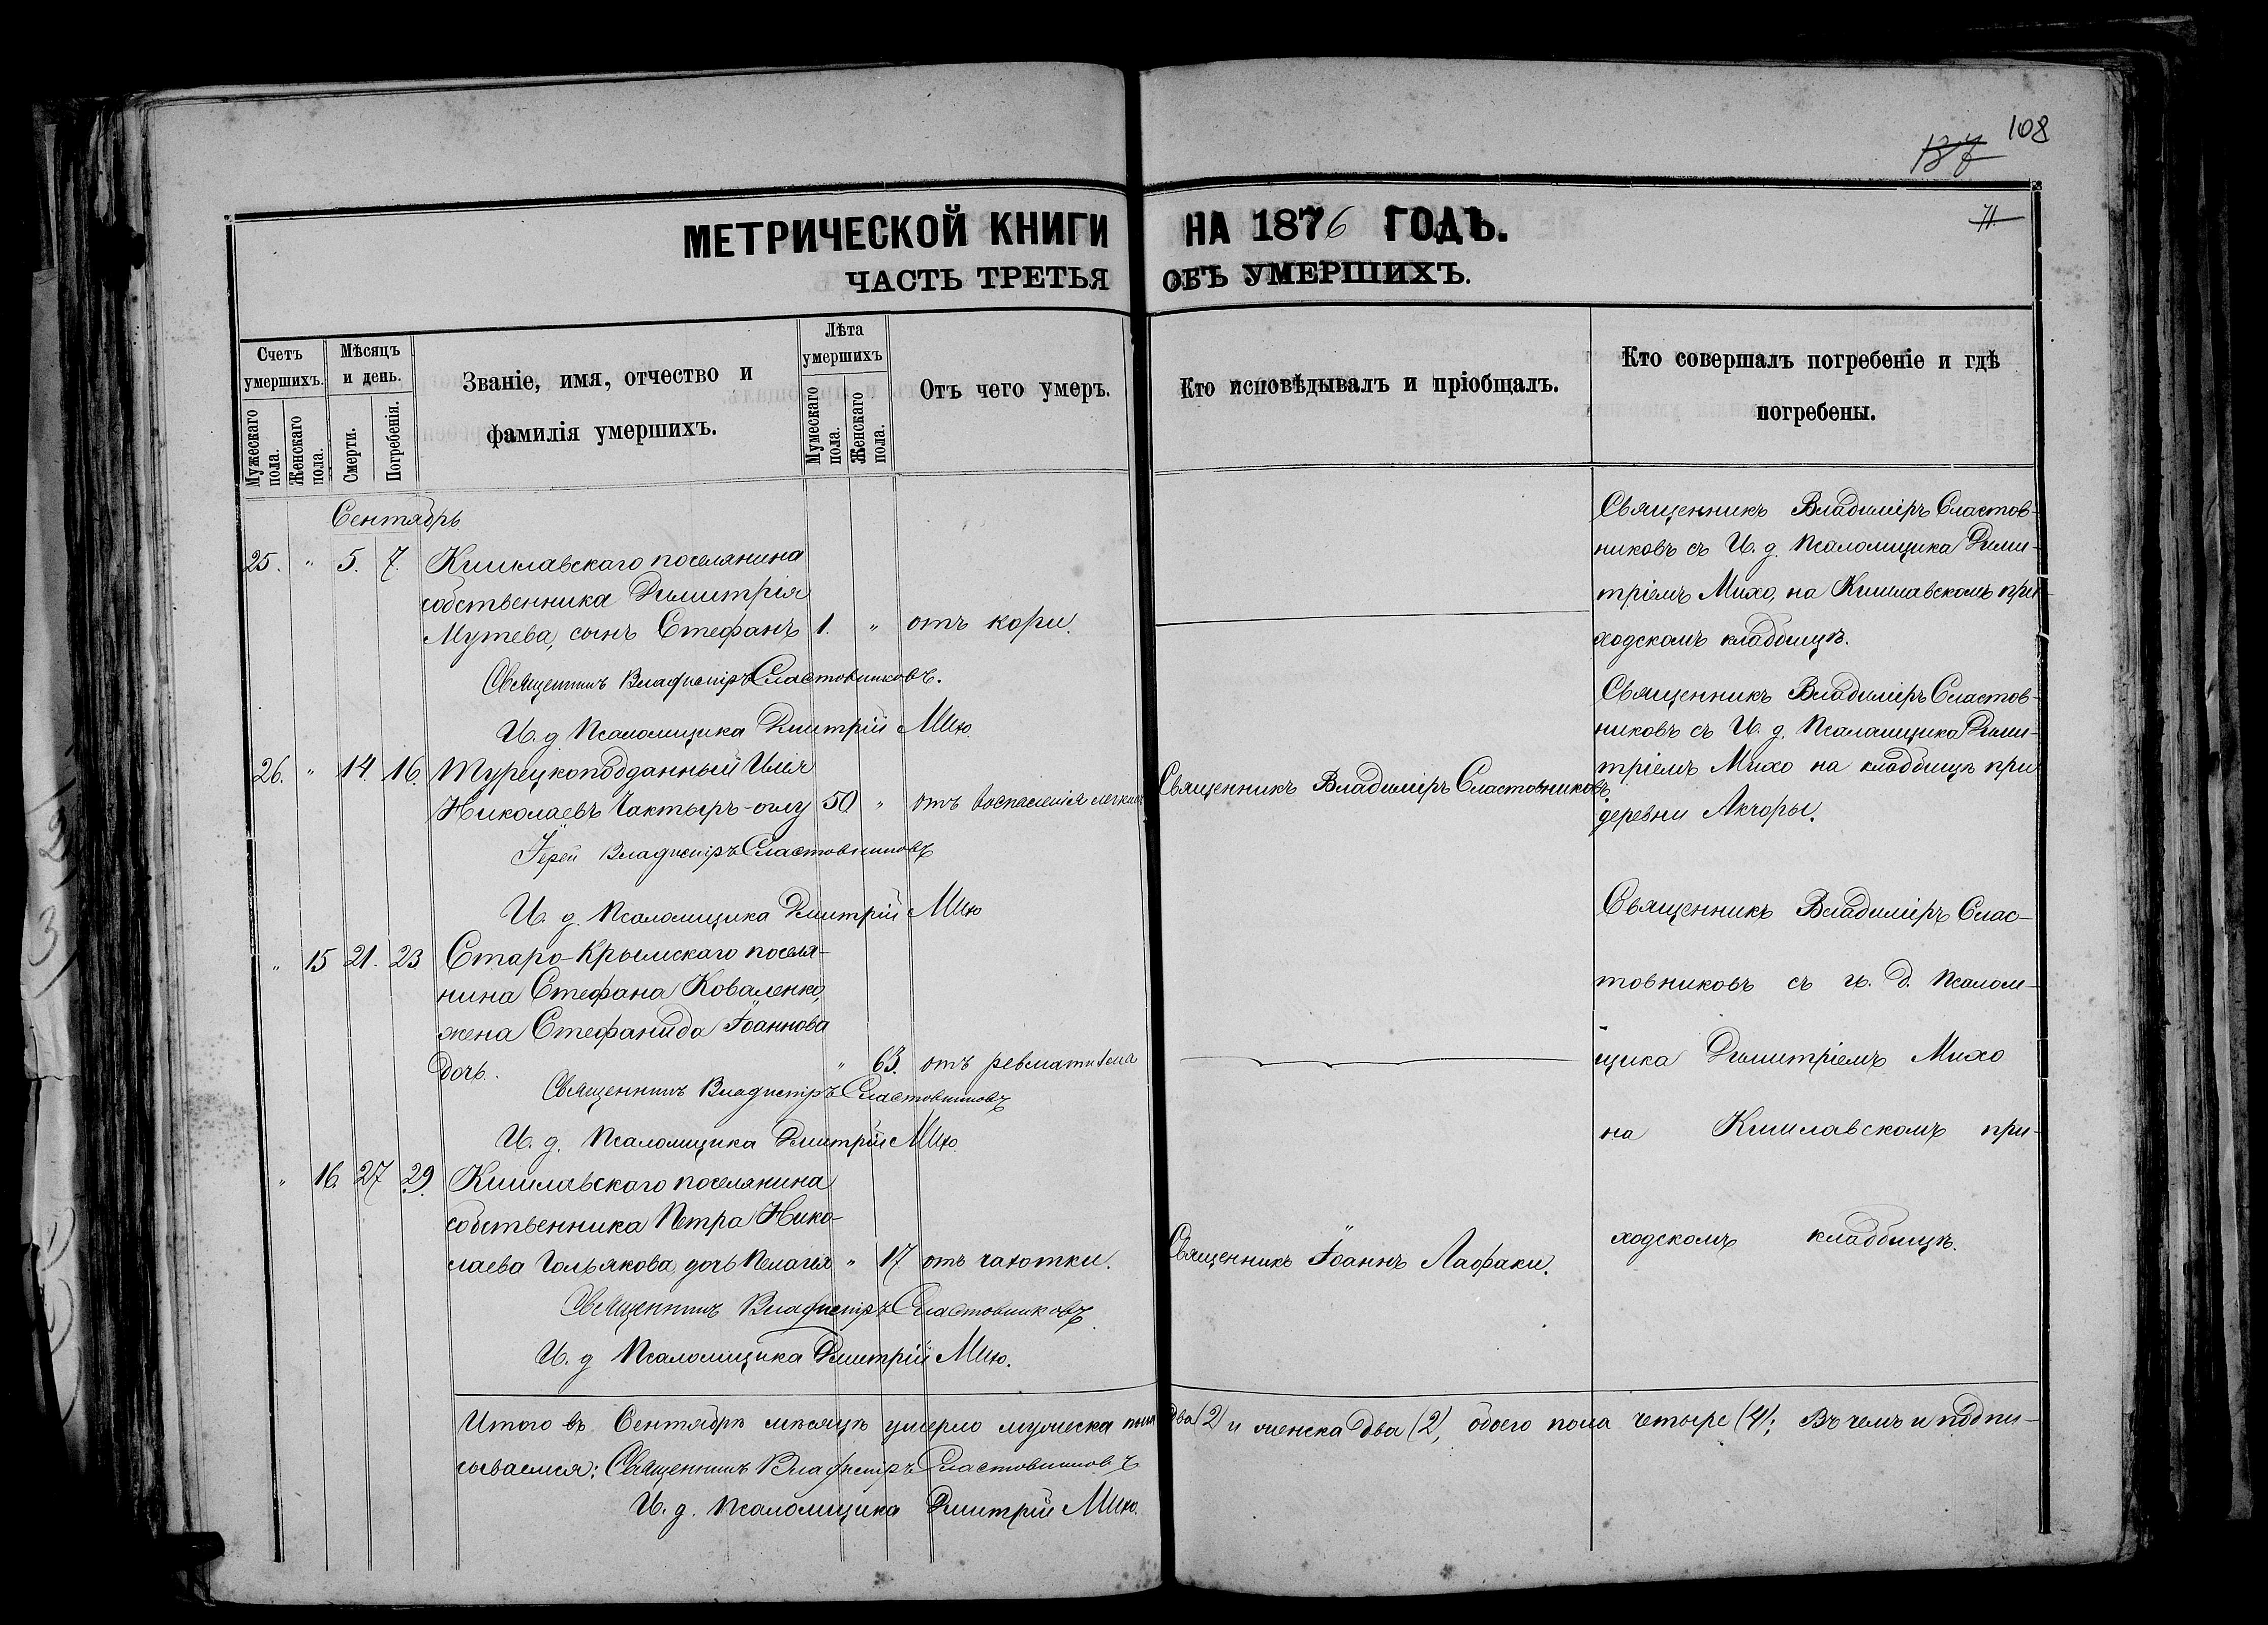 108
137
71.
МЕТРИЧЕСКОЙ КНИГИ НА 1876 ГОДЪ.
ЧАСТЬ ТРЕТЬЯ ОБЪ УМЕРШИХЪ.
Счетъ умершихъ.
Мужескаго пола.
Женскаго пола.
Мѣсяцъ и день.
Смерти.
Погребенія.
Званіе, имя, отчество и
фамилія умершихъ.
Лѣта умершихъ
Мужескаго пола.
Женскаго пола.
Отъ чего умеръ.
Кто исповѣдывалъ и пріобщалъ.
Кто совершалъ погребеніе и гдѣ
погребены.
Сентябрь
25. " 5. 7. Кишлавскаго поселянина
собственника Димитрія
Мутева, сынъ Стефанъ 1. " отъ кори.
Священникъ Владиміръ Сластовниковъ.
И. д. Псаломщика Дмитрій Михо.
Священникъ Владиміръ Сластов-
никовъ съ И. д. Псаломщика Дими-
тріемъ Михо, на Кишлавскомъ при-
ходскомъ кладбищѣ.
26. " 14. 16. Турецкоподданный Илія
Николаевъ Чактыръ-оглу 50 " отъ воспаленія легкихъ
Священникъ Владиміръ Сластовниковъ
Іерей Владиміръ Сластовниковъ
И. д. Псаломщика Дмитрій Михо
Священникъ Владиміръ Сластов-
никовъ съ И. д. Псаломщика Дими-
тріемъ Михо на кладбищѣ при
деревни Акчоры.
" 15 21. 23 Старо-Крымскаго поселя-
нина Стефана Коваленко,
жена Стефанида Іоаннова
дочь. " 63. отъ ревматизма
Священникъ Владиміръ Сластовниковъ
И. д. Псаломщика Дмитрій Михо.
" 16. 27 29. Кишлавскаго поселянина
собственника Петра Нико-
лаева Гольякова, дочь Пелагія " 17 отъ чахотки.
Священникъ Іоаннъ Лафаки.
Священникъ Владиміръ Сластовниковъ.
И. д. Псаломщика Дмитрій Михо.
Священникъ Владиміръ Слас-
товниковъ съ и. д. Псалом-
щика Димитріемъ Михо
на Кишлавскомъ при-
ходскомъ кладбищѣ.
Итого въ Сентябрѣ мѣсяцѣ умерло мужеска пола два (2) и женска два (2), обоего пола четыре (4); Въ чемъ и подпи-
сываемся: Священникъ Владиміръ Сластовниковъ
И. д. Псаломщика Дмитрій Михо.